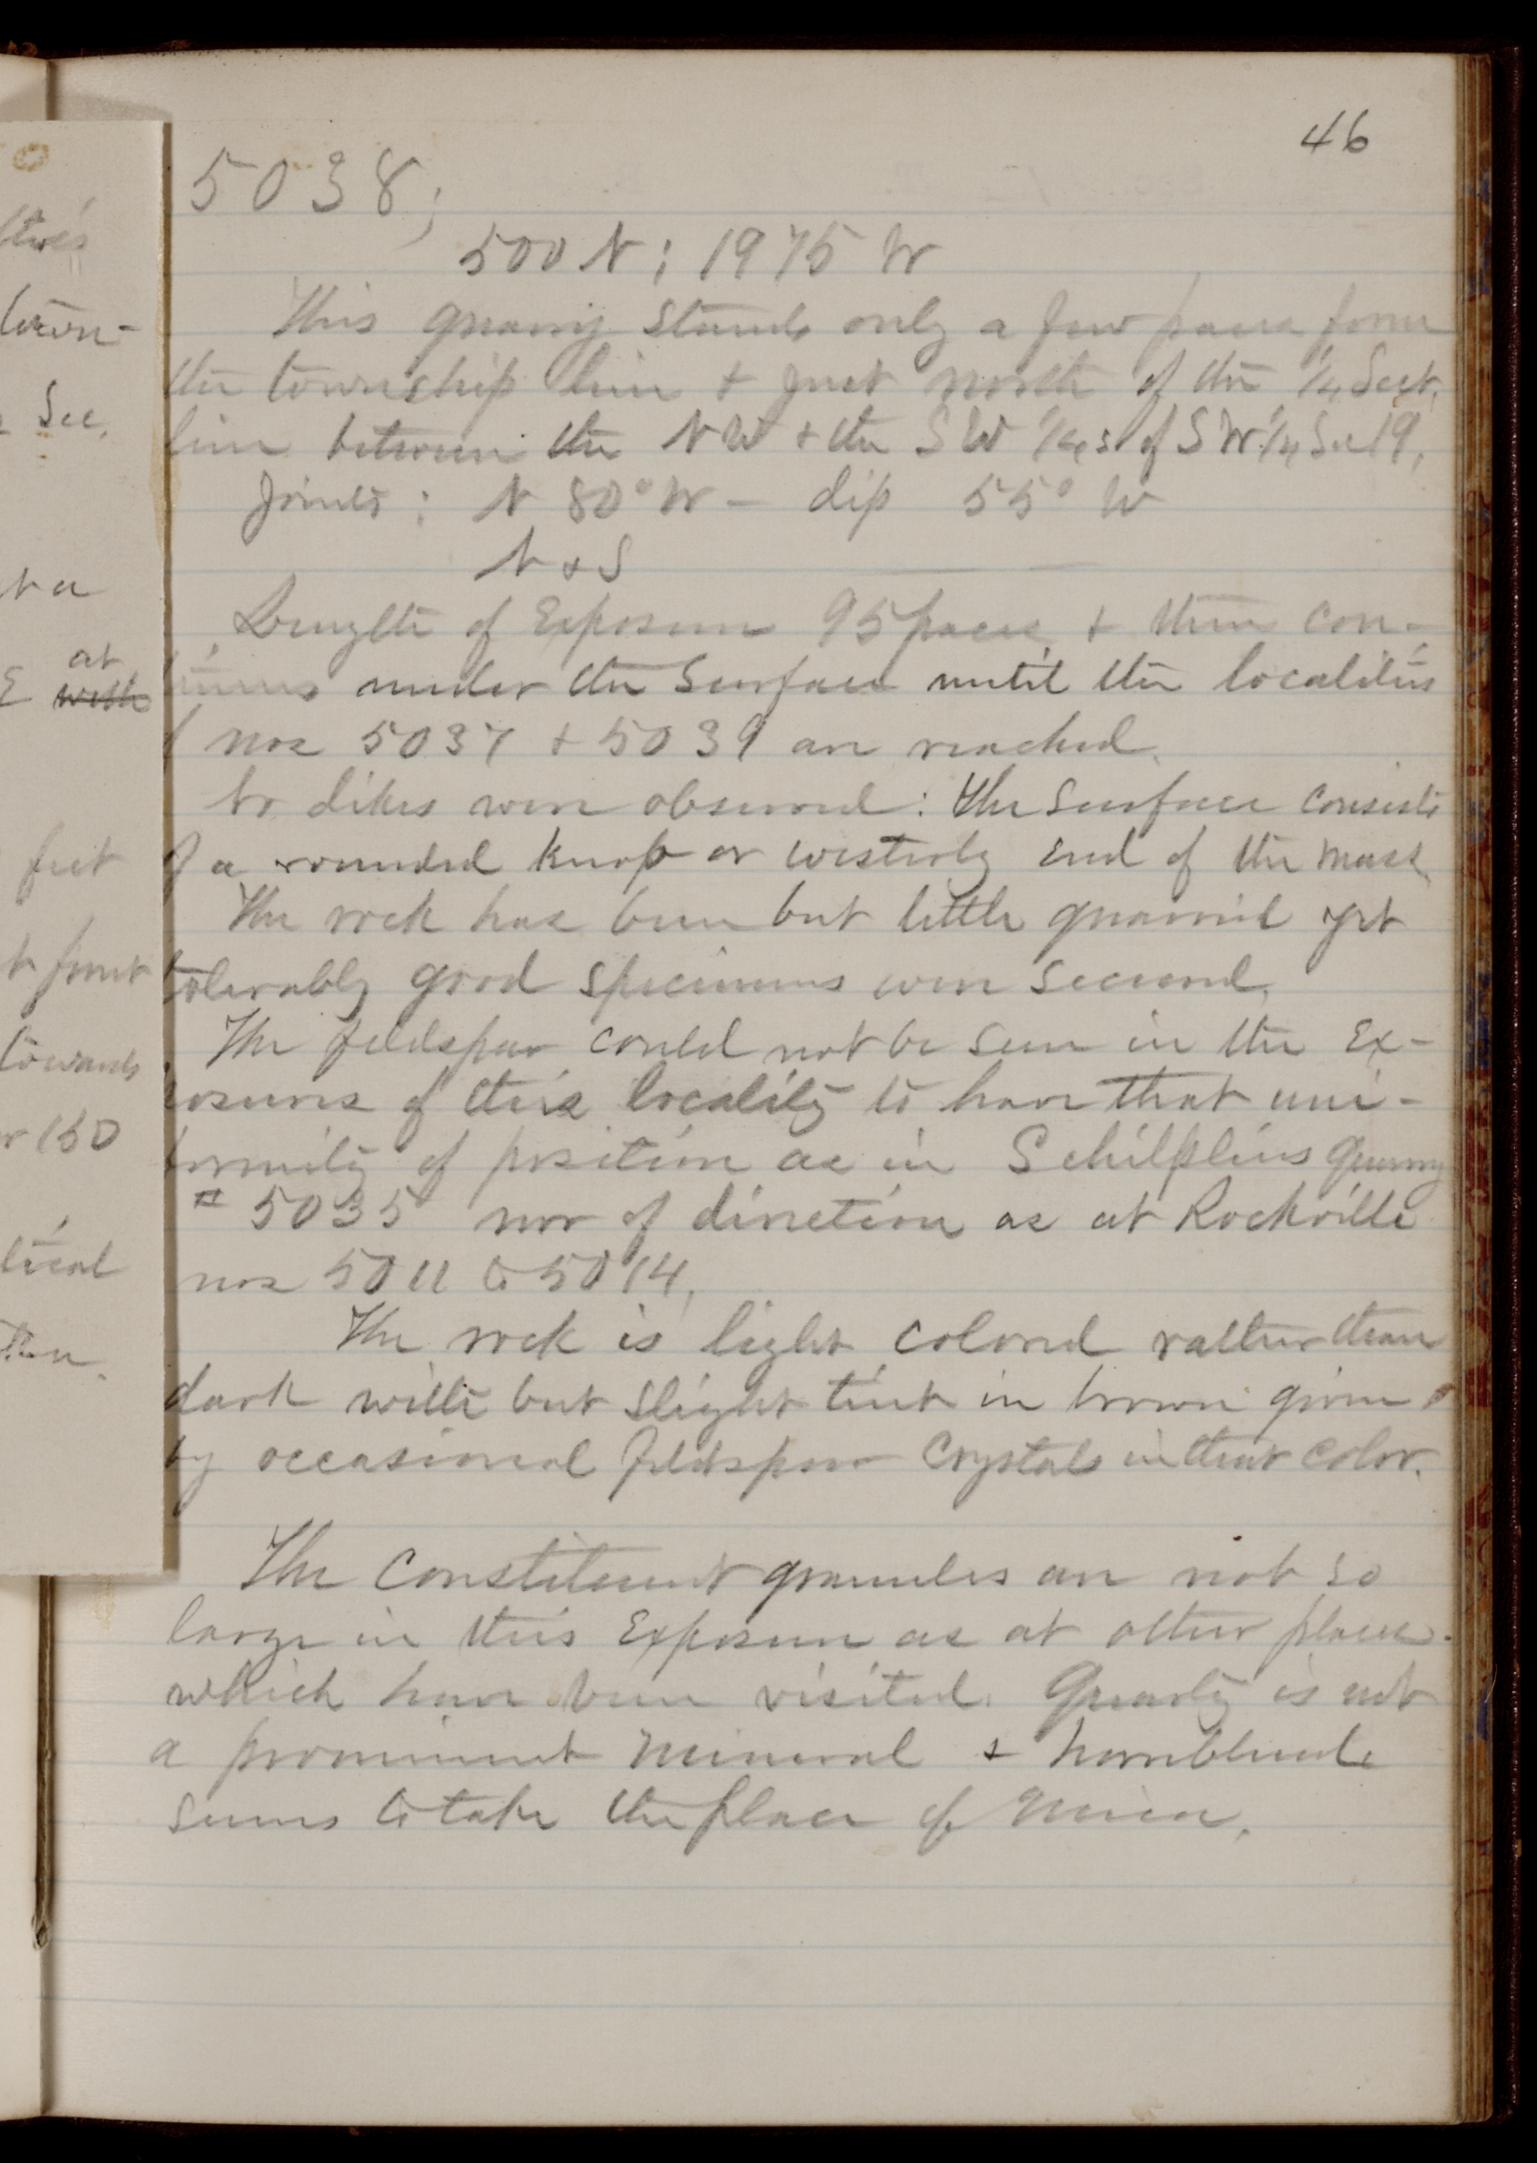 46
5038;
500 N; 1975 W
This quarry stands only a few paces from
the township line + just north of the 1/4 Sect.
line between the NW + the SW 1/4s of SW 1/4 Sec 19,
Joints: N 80° W - dip 55° W
N & S
Length of Exposure 95 paces, + then con-
tinues under the Surface until the localities
nos 5037 + 5039 are reached.
No dikes were observed: The Surface consists
of a rounded knob or westerly End of the mass.
The rock has been but little quarried yet
tolerably good specimens were secured.
The feldspar could not be seen in the Ex-
posures of this locality to have that uni-
formity of position as in Schilplins quarry
# 5035 nor of direction as at Rockville
nos 5011 to 5014,
The rock is light colored rather than
dark with but slight tint in brown given
by occasional feldspar Crystals in that color.
The Constituent granules are not so
large in this Exposure as at other places
which have been visited. Quartz is not
a prominent mineral & hornblende
seems to take the place of mica.
ltwes
town-
Sec.
at a
at
E with
feet
t front
towards
or 150
tical